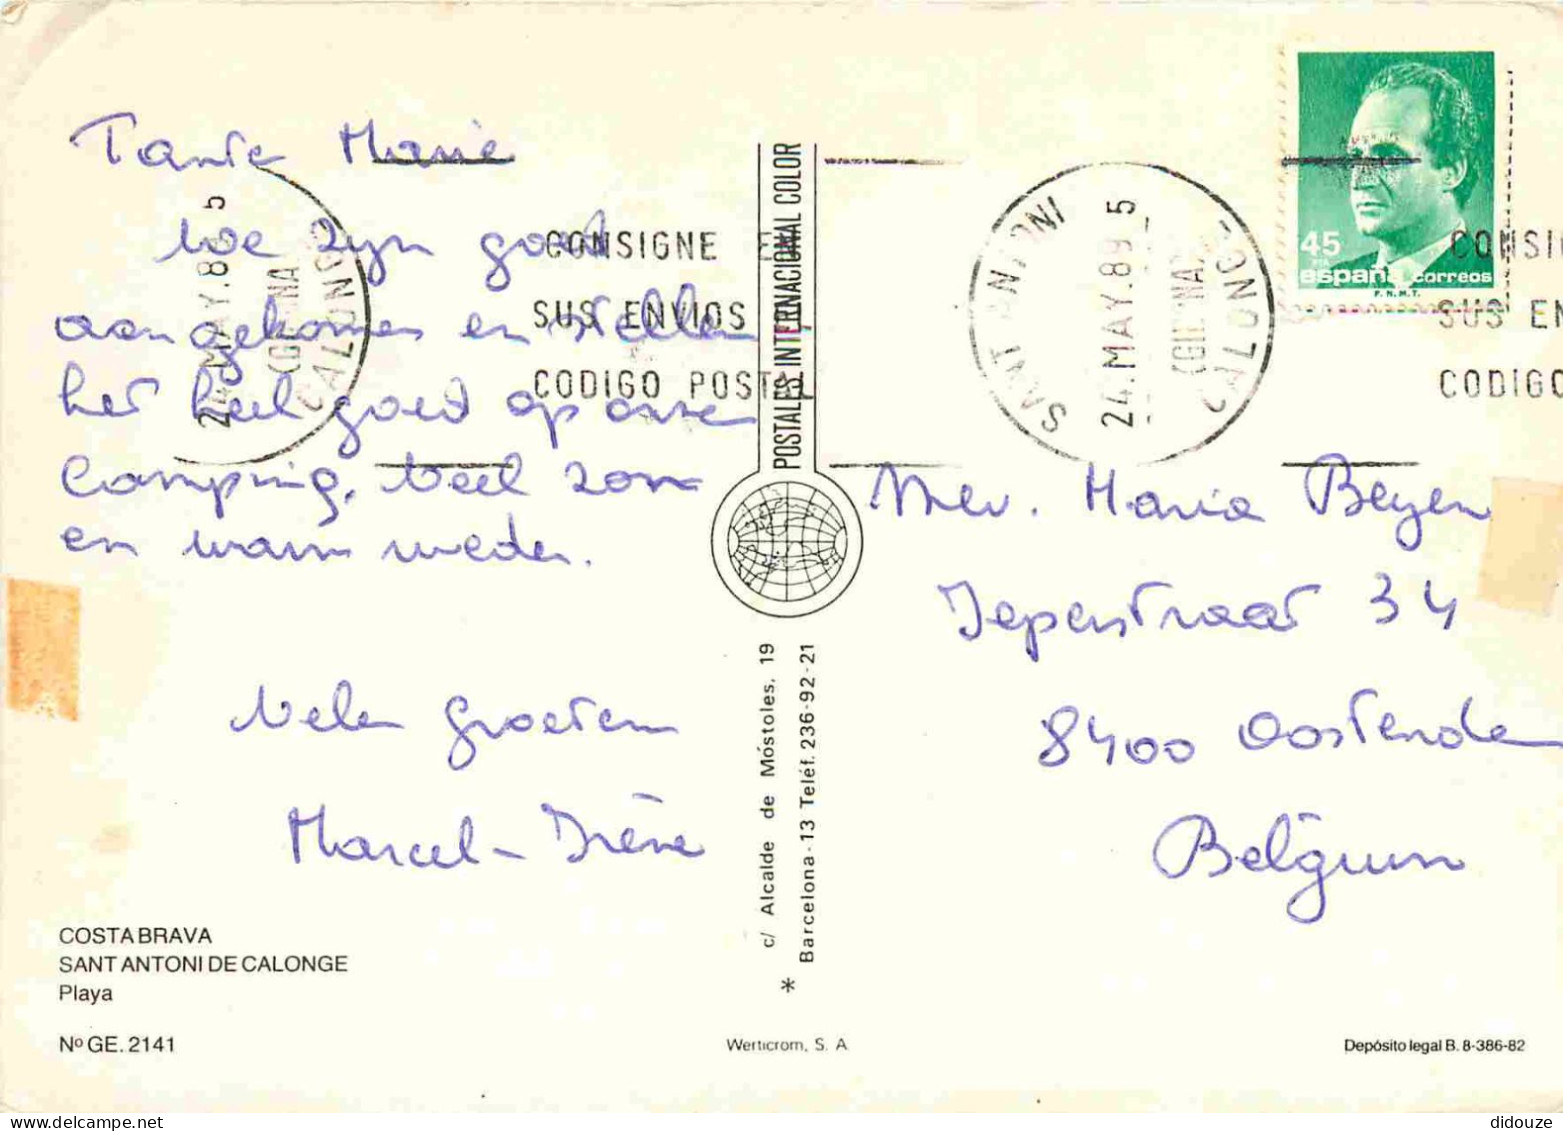 Tante Marie
We zijn goed
aangekomen en stellen
het heel goed op onze
camping, veel zon
en warm weder.
Vele groeten
Marcel - Irène
COSTA BRAVA
SANT ANTONI DE CALONGE
Playa
Nº GE. 2141
POSTALES INTERNACIONAL COLOR
c/ Alcalde de Móstoles, 19
Barcelona - 13 Teléf. 236-92-21
*
Werticrom, S. A
CONSIGNE EN
SUS ENVIOS
CODIGO POSTAL
24.MAY.89 5
CALONGE
SANT ANTONI
24.MAY.89 5
CALONGE
45
PTA
España correos
F.N.M.T.
CONSIG
SUS EN
CODIGO
Mev. Maria Beyen
Ieperstraat 34
8400 Oostende
Belgium
Depósito legal B. 8-386-82
didouze